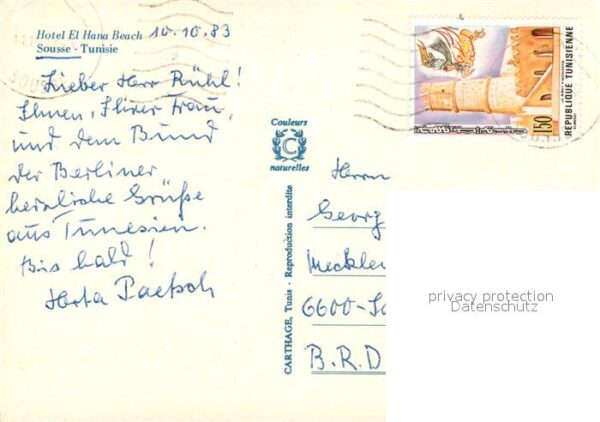 Hotel El Hana Beach 10.10.83
Sousse - Tunisie
Lieber Herr Rühl!
Ihnen, Ihrer Frau,
und dem Bund
der Berliner
herzliche Grüße
aus Tunesien.
Bis bald!
Herta Paetsch
Couleurs
C
naturelles
CARTHAGE, Tunis - Reproduction interdite
Herrn
Georg
Mecklen
6600-Sa
B.R.D
150
REPUBLIQUE TUNISIENNE
privacy protection
Datenschutz